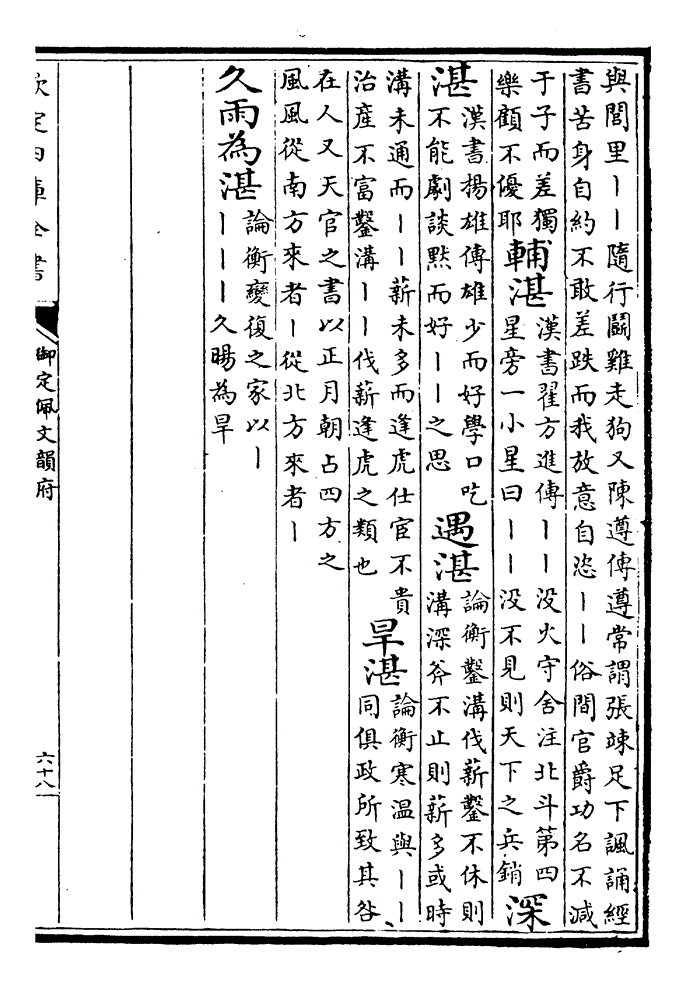 與閭里丨丨隨行鬭雞走狗又陳遵傳遵常謂張竦足下諷誦經
書苦身自約不敢差跌而我放意自恣丨丨俗間官爵功名不減
于子而差獨
樂顧不優耶
輔湛
漢書翟方進傳丨丨没火守舍注北斗第四
星旁一小星曰丨丨没不見則天下之兵銷
深
湛
漢書揚雄傳雄少而好學口吃
不能劇談黙而好丨丨之思
遇湛
論衡鑿溝伐薪鑿不休則
溝深斧不止則薪多或時
溝未通而丨丨薪未多而逢虎仕宦不貴
治産不富鑿溝丨丨伐薪逢虎之類也
旱湛
論衡寒温與丨丨
同俱政所致其咎
在人又天官之書以正月朝占四方之
風風從南方來者丨從北方來者丨
久雨為湛
論衡變復之家以丨
丨丨丨久暘為旱
欽定四庫全書
御定佩文韻府
六十八